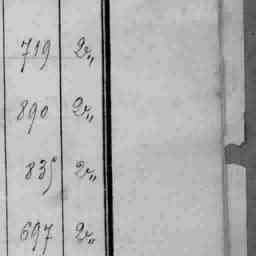 719 2„
890 2„
835 2„
697 2„